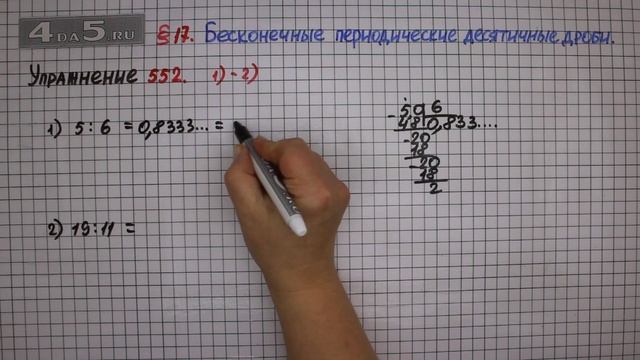 4DA5.RU § 17. Бесконечные периодические десятичные дроби.
Упражнение 552. 1) - 2)
1) 5 : 6 = 0,8333... =
50 6
- 48 0,833....
- 20
18
- 20
18
2
2) 19 : 11 =